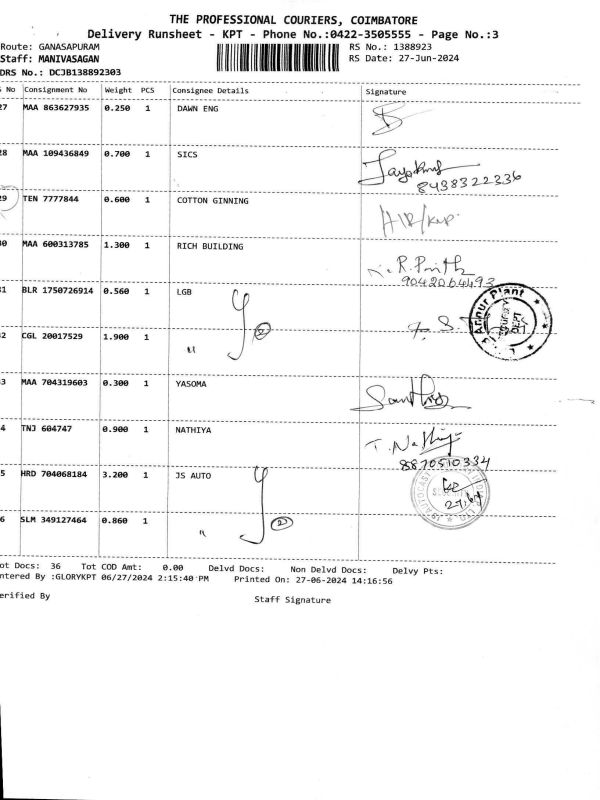 THE PROFESSIONAL COURIERS, COIMBATORE
Delivery Runsheet - KPT - Phone No.:0422-3505555 - Page No.:3
Route: GANASAPURAM RS No.: 1388923
Staff: MANIVASAGAN RS Date: 27-Jun-2024
DRS No.: DCJB138892303
No Consignment No Weight PCS Consignee Details Signature
27 MAA 863627935 0.250 1 DAWN ENG
28 MAA 109436849 0.700 1 SICS
8438322336
29 TEN 7777844 0.600 1 COTTON GINNING
30 MAA 600313785 1.300 1 RICH BUILDING
9042064493
31 BLR 1750726914 0.560 1 LGB
Plant
2 CGL 20017529 1.900 1 " 2
3 MAA 704319603 0.300 1 YASOMA
4 TNJ 604747 0.900 1 NATHIYA T. Nathiya
8870510334
5 HRD 704068184 3.200 1 JS AUTO
27.6.24
6 SLM 349127464 0.860 1 " 2
ot Docs: 36 Tot COD Amt: 0.00 Delvd Docs: Non Delvd Docs: Delvy Pts:
ntered By :GLORYKPT 06/27/2024 2:15:40 PM Printed On: 27-06-2024 14:16:56
erified By Staff Signature